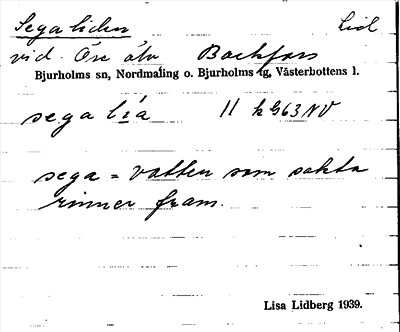 Segaliden Lid
vid Öre älv Backfors
Bjurholms sn, Nordmaling o. Bjurholms tg, Västerbottens l.
segalia 11 k G63 NV
sega = vatten som sakta
rinner fram.
Lisa Lidberg 1939.